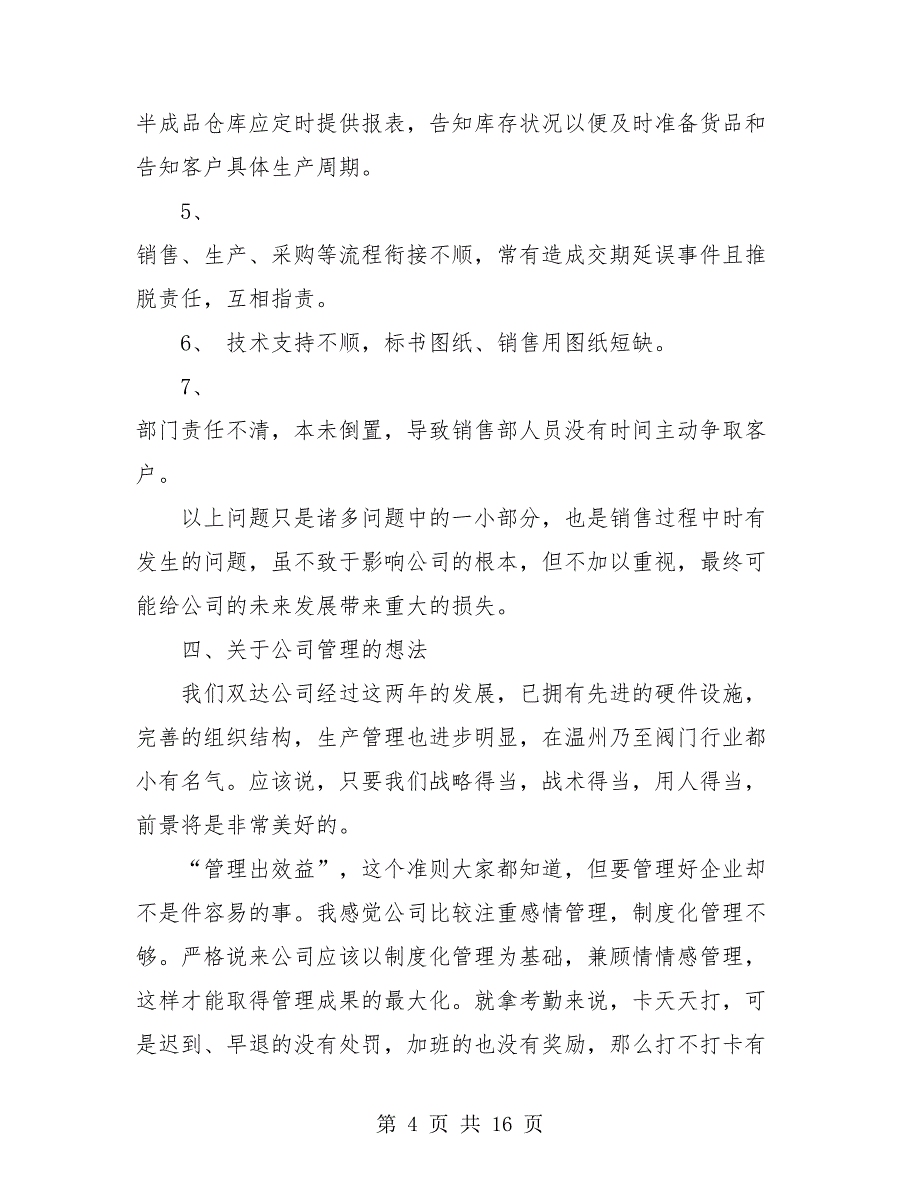 半成品仓库应定时提供报表，告知库存状况以便及时准备货品和
告知客户具体生产周期。
5、
销售、生产、采购等流程衔接不顺，常有造成交期延误事件且推
脱责任，互相指责。
6、 技术支持不顺，标书图纸、销售用图纸短缺。
7、
部门责任不清，本未倒置，导致销售部人员没有时间主动争取客
户。
以上问题只是诸多问题中的一小部分，也是销售过程中时有
发生的问题，虽不致于影响公司的根本，但不加以重视，最终可
能给公司的未来发展带来重大的损失。
四、关于公司管理的想法
我们双达公司经过这两年的发展，已拥有先进的硬件设施，
完善的组织结构，生产管理也进步明显，在温州乃至阀门行业都
小有名气。应该说，只要我们战略得当，战术得当，用人得当，
前景将是非常美好的。
“管理出效益”，这个准则大家都知道，但要管理好企业却
不是件容易的事。我感觉公司比较注重感情管理，制度化管理不
够。严格说来公司应该以制度化管理为基础，兼顾情情感管理，
这样才能取得管理成果的最大化。就拿考勤来说，卡天天打，可
是迟到、早退的没有处罚，加班的也没有奖励，那么打不打卡有
第 4 页 共 16 页